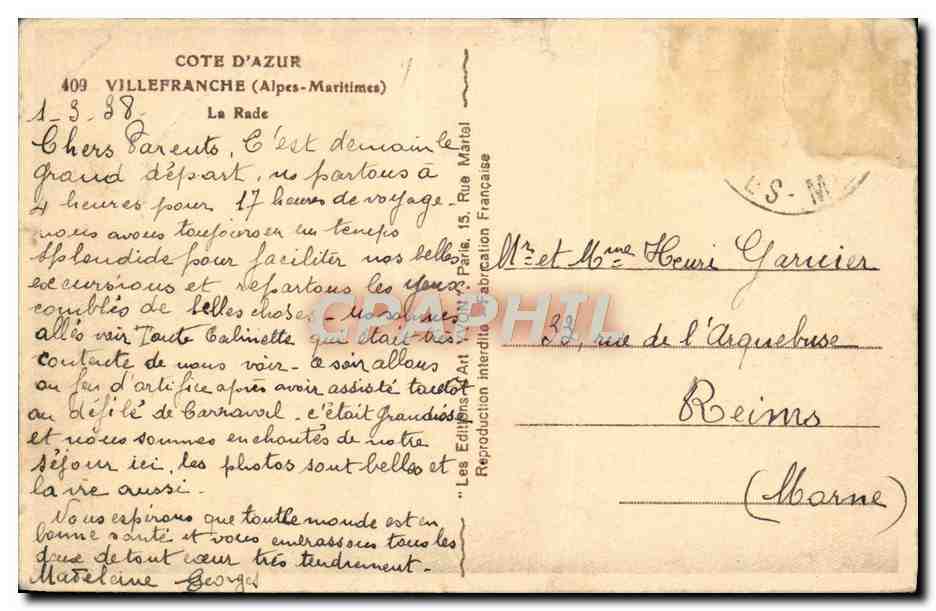 COTE D'AZUR
409 VILLEFRANCHE (Alpes-Maritimes)
La Rade
1-3-38-
Chers Parents, C'est demain le
grand départ, ns partons à
4 heures pour 17 heures de voyage-
nous avons toujours eu un temps
splendide pour faciliter nos belles
excursions et repartons les yeux
comblés de belles choses - ns sommes
allés voir Tante qui était très
contente de nous voir - ce soir allons
au feu d'artifice après avoir assisté tantôt
au défilé de Carnaval - c'était grandiose
et nous sommes enchantés de notre
séjour ici, les photos sont belles et
la vie aussi -
Nous espérons que tout le monde est en
bonne santé et vous embrassons tous les
deux de tout cœur très tendrement -
Madeleine Georges
"Les Editions d'Art YVON" Paris, 15, Rue Martel
Reproduction interdite Fabrication Française
ES - M
Mr et Mme Henri Garnier
33, rue de l'Arquebuse
Reims
(Marne)
CPAPHIL